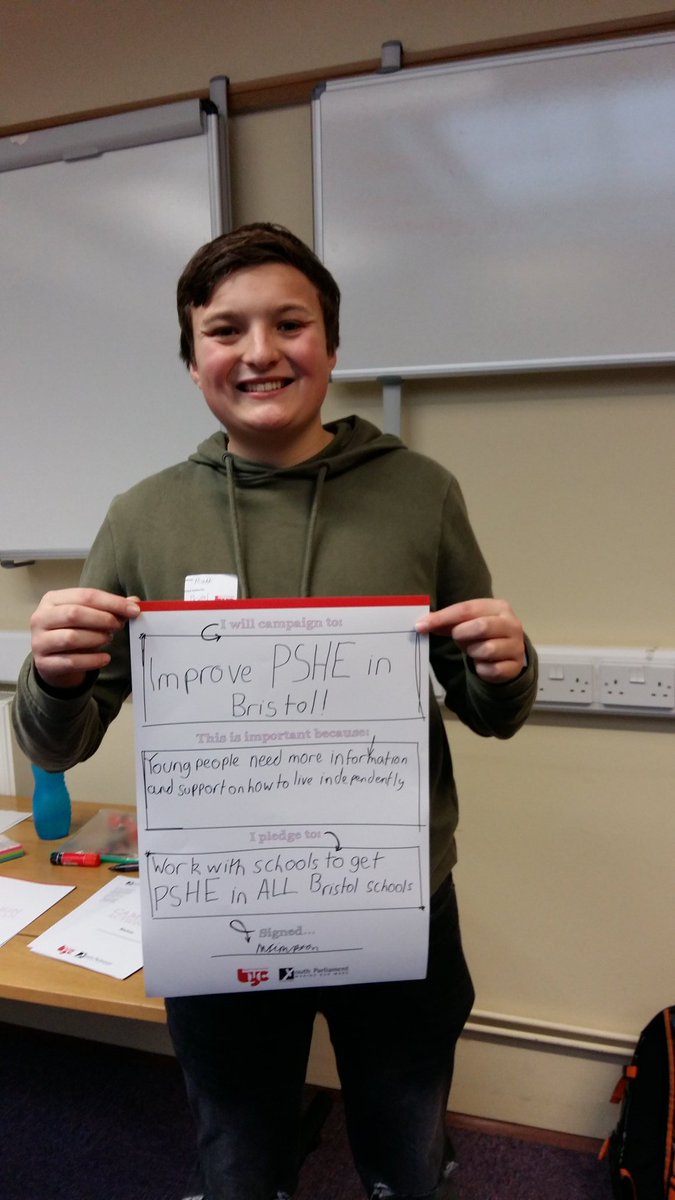 I will campaign to:
Improve PSHE in
Bristol!
This is important because:
Young people need more information
and support on how to live independently
I pledge to:
Work with schools to get
PSHE in ALL Bristol schools
Signed...
byc
Youth Parliament
MAKING OUR MARK